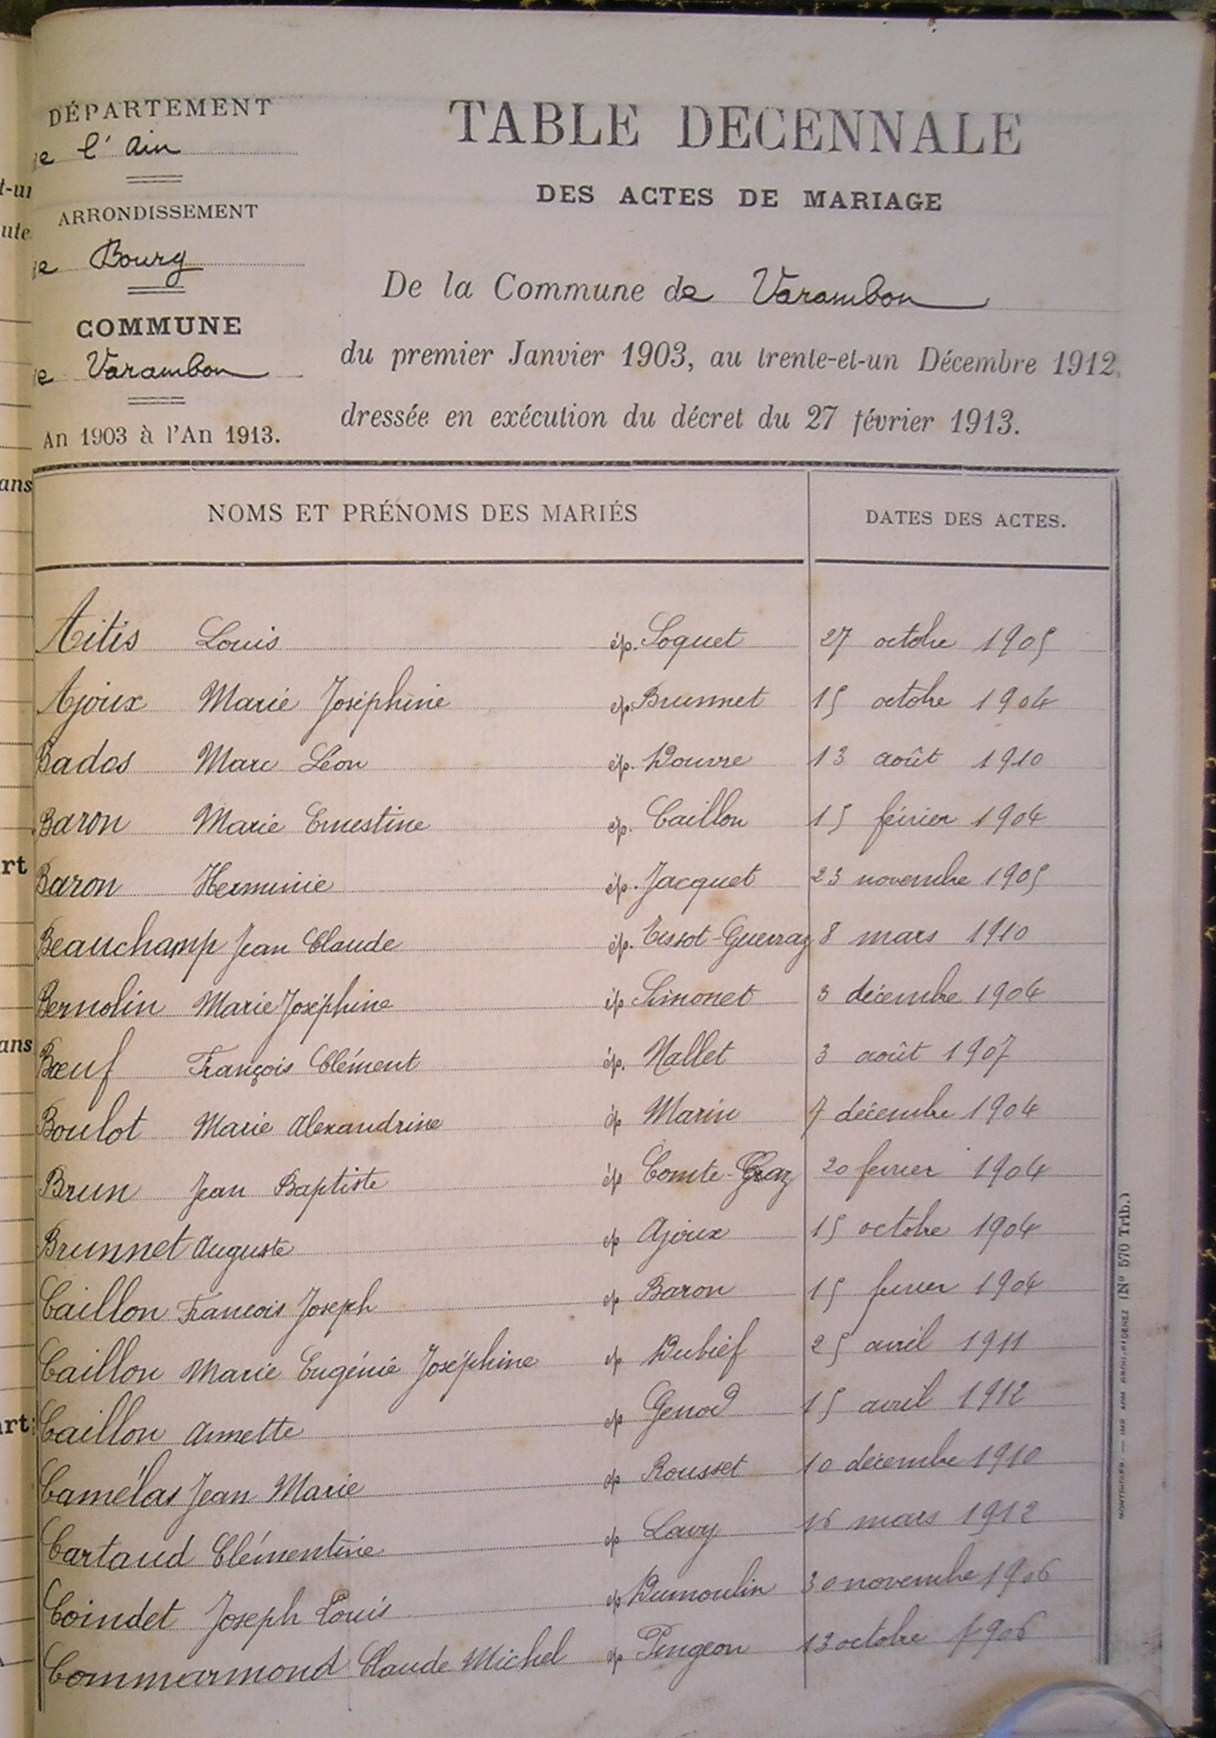 DÉPARTEMENT
de l'Ain
ARRONDISSEMENT
de Bourg
COMMUNE
de Varambon
An 1903 à l'An 1913.
TABLE DECENNALE
DES ACTES DE MARIAGE
De la Commune de Varambon
du premier Janvier 1903, au trente-et-un Décembre 1912,
dressée en exécution du décret du 27 février 1913.
NOMS ET PRÉNOMS DES MARIÉS DATES DES ACTES.
Aitis Louis ép. Soquet 27 octobre 1905
Ajoux Marie Joséphine ép. Brunnet 15 octobre 1904
Bados Marc Léon ép. Douvre 13 août 1910
Baron Marie Ernestine ép. Caillon 15 février 1904
Baron Herminie ép. Jacquet 23 novembre 1905
Beauchamp Jean Claude ép. Tissot-Guerraz 8 mars 1910
Bernolin Marie Joséphine ép Simonet 3 décembre 1904
Bœuf François Clément ép. Nallet 3 août 1907
Boulot Marie Alexandrine ép Marin 7 décembre 1904
Brun Jean Baptiste ép Comte-Graz 20 fevrier 1904
Brunnet Auguste ep Ajoux 15 octobre 1904
Caillon Francois Joseph ep Baron 15 fevrier 1904
Caillon Marie Eugénie Joséphine ep Dubief 25 avril 1911
Caillon Annette ep Genod 15 avril 1912
Camélas Jean Marie ep Rousset 10 décembre 1910
Cartaud Clémentine ep Lavy 16 mars 1912
Coindet Joseph Louis ep Dumoulin 30 novembre 1906
Commarmond Claude Michel ep Pingeon 13 octobre 1906
(N° 570 Trib.)